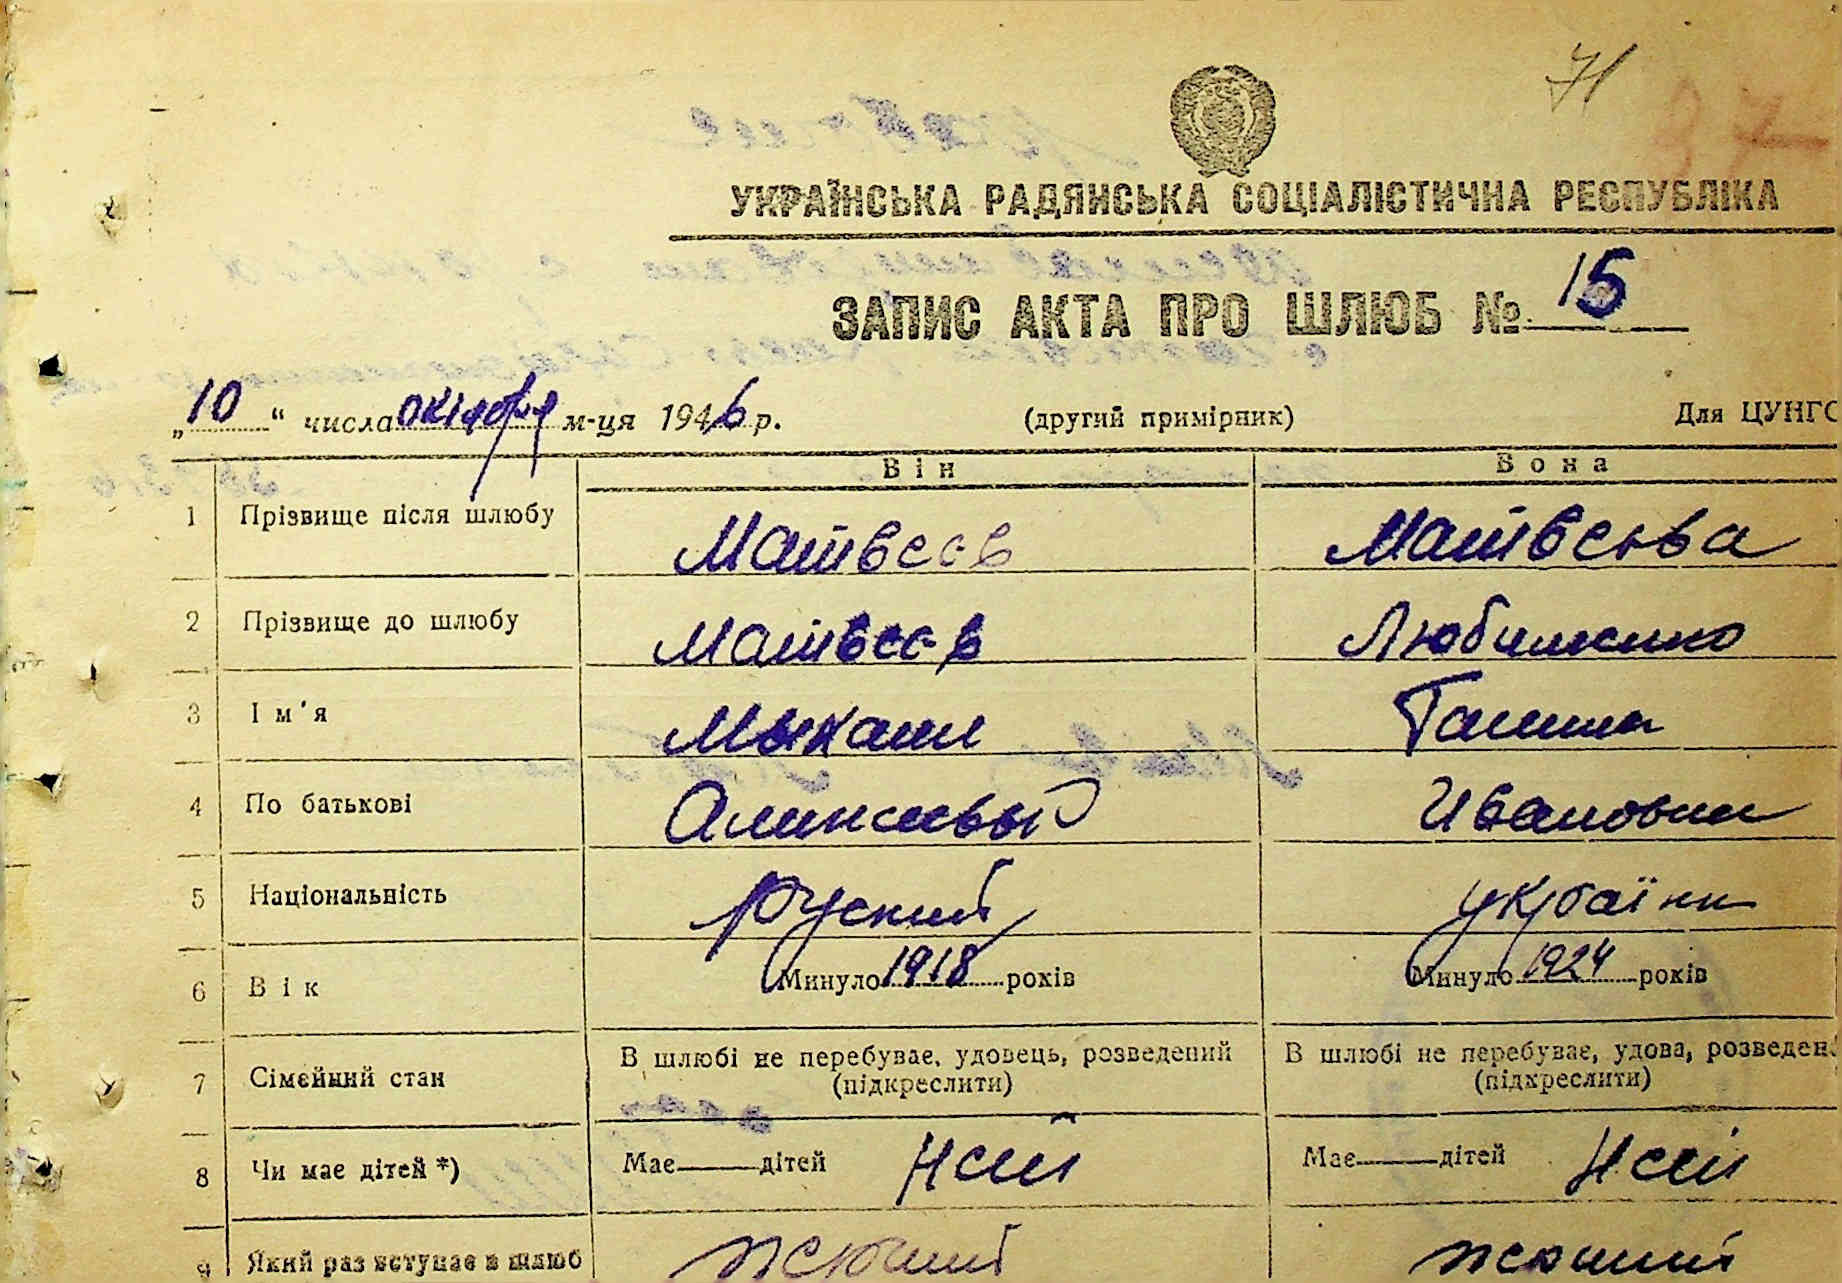 71
УКРАЇНСЬКА РАДЯНСЬКА СОЦІАЛІСТИЧНА РЕСПУБЛІКА
ЗАПИС АКТА ПРО ШЛЮБ № 15
„10“ числа октября м-ця 1946 р. (другий примірник) Для ЦУНГО
Він Вона
1 Прізвище після шлюбу Матвеев Матвеева
2 Прізвище до шлюбу Матвеев Любименко
3 Ім'я Мыхаил Галина
4 По батькові Алексеевый Ивановна
5 Національність Руский україн
6 Вік Минуло 1918 років Минуло 1924 років
7 Сімейний стан В шлюбі не перебуває, удовець, розведений В шлюбі не перебуває, удова, розведен
(підкреслити) (підкреслити)
8 Чи має дітей *) Має дітей нет Має дітей нет
9 Який раз вступає в шлюб первий первий